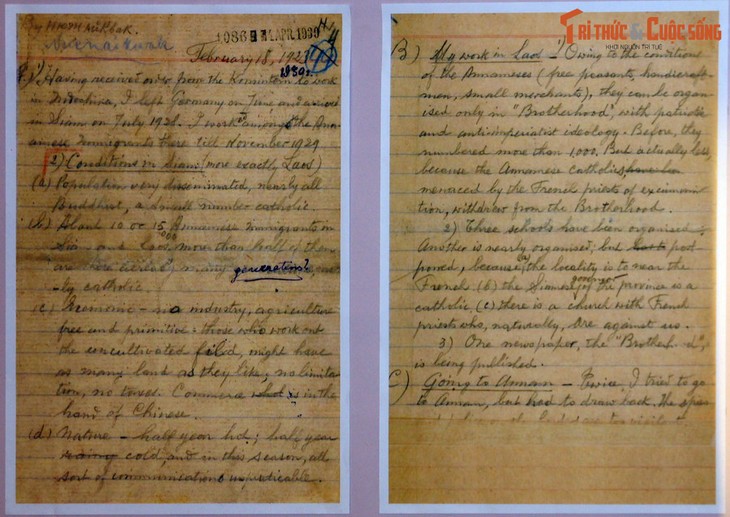 1086 11 APR. 1930
February 18, 1929
1930.
1) Having received order from the Komintern to work
in Indochina, I left Germany on June and arrived
in Siam on July 1928. I work among the Ana-
amese immigrants there till November 1929
2) Conditions in Siam (more exactly Laos)
(a) Population very disseminated, nearly all
Buddhist, a small number catholic.
(b) About 10 or 15,000 Annamese immigrants in
Siam and Laos, more than half of them
are there already many generations
-ly catholic.
(c) Economic - no industry, agriculture
free and primitive: those who work out
the uncultivated field, might have
as many land as they like, no limita-
tion, no taxes. Commerce is in the
hand of Chinese.
(d) Nature - half year hot; half year
cold, and in this season, all
sort of communications unpracticable.
TRI THỨC & CUỘC SỐNG
KHƠI NGUỒN TRI TUỆ
B) My work in Laos - 1) Owing to the conditions
of the Annameses (free peasants, handicraft-
men, small merchants), they can be organ-
ised only in "Brotherhood", with patriotic
and antiimperialist ideology. Before, they
numbered more than 1,000. But actually less,
because the Annamese catholics,
menaced by the French priests of excommunica-
tion, withdrew from the Brotherhood.
2) Three schools have been organised;
Another is nearly organised, but post-
poned, because (a) the locality is to near the
French. (b) the Siamese governor of the province is a
catholic, (c) there is a church with French
priests who, naturally, are against us.
3) One newspaper, the "Brotherhood",
is being published.
C) Going to Annam - Twice, I tried to go
to Annam, but had to draw back. The